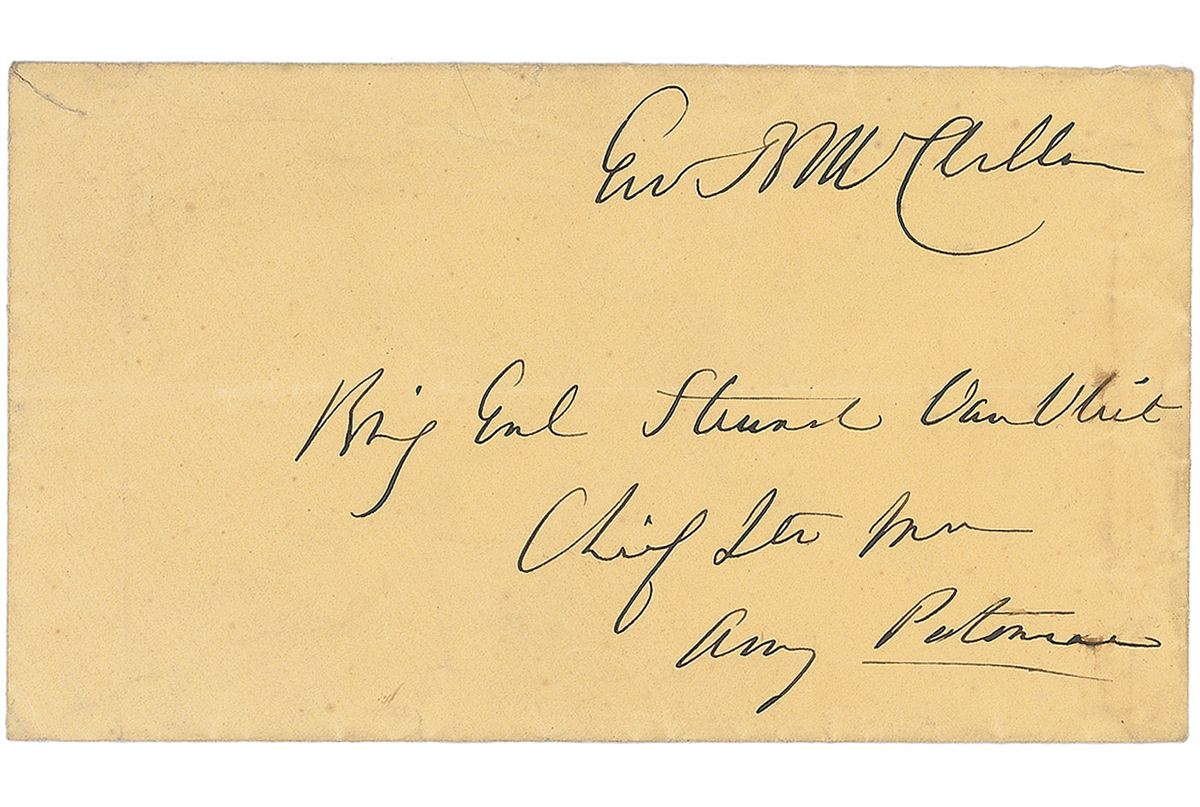 Geo B McClellan
Brig Genl Stewart Van Vliet
Chief Qtr Mr
Army Potomac